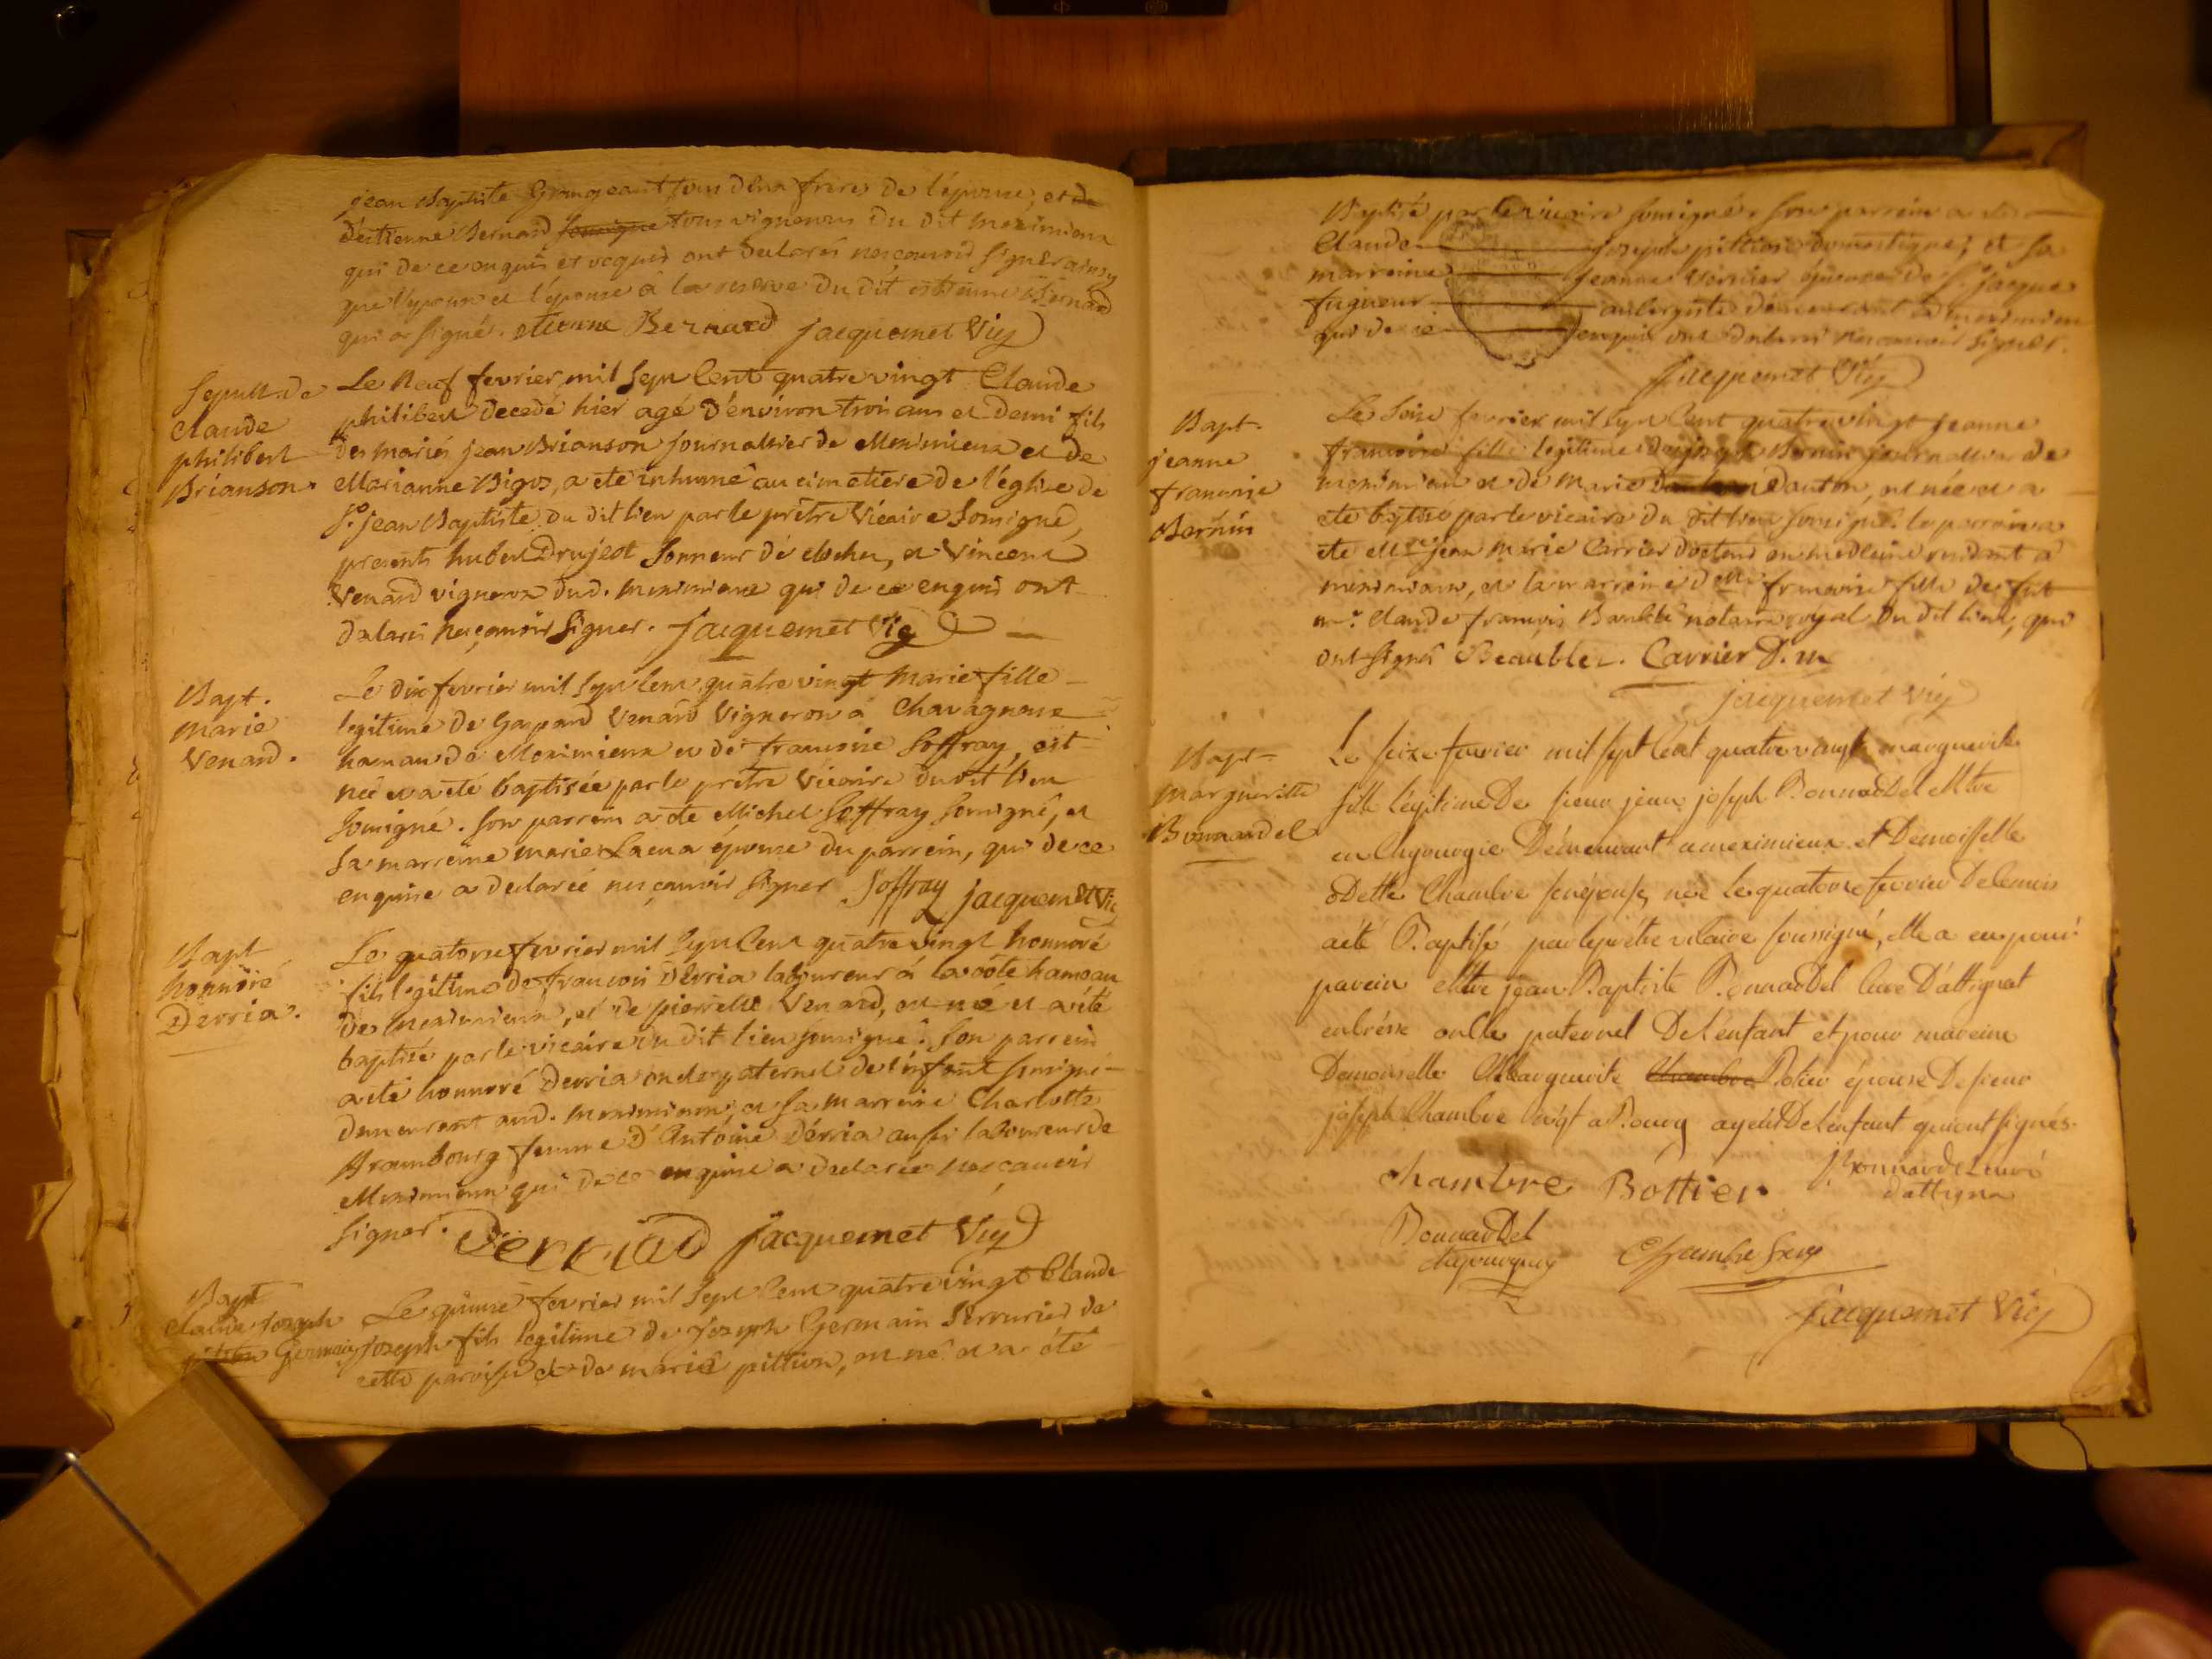 jean Baptiste Grangeant, tous deux freres de l'epouse, et de
d'estienne Bernard soussigné tous vignerons du dit meximieux
qui de ce enquis et requis ont declarés ne sçavoir signer ainsy
que l'epoux et l'epouse à la reserve du dit estienne Bernard
qui a signé. etienne Bernard jacquemet Vic
Sepult. de
Claude
philibert
Brianson.
Le Neuf fevrier mil sept Cent quatre vingt Claude
philibert decedé hier agé d'environ trois ans et demi fils
des mariés jean Brianson journallier de Meximieux et de
Marianne Bigos, a eté inhumé au cimetiere de l'église de
St. jean Baptiste du dit lieu par le prêtre Vicaire Sousigné,
presents hubert Drujeot Sonneur de cloches, et Vincent
Venard vigneron dud. meximieux qui de ce enquis ont
declarés ne sçavoir signer. jacquemet Vic
Bapt.
Marie
Venard.
Le dix fevrier mil sept cent quatre vingt Marie fille
legitime de Gaspard Venard Vigneron à Chavagneux
hameau de Meximieux et de françoise Soffray, est
neé et a eté baptisée par le prêtre Vicaire du dit lieu
Sousigné. Son parrein a eté Michel Soffray Sousigné, et
Sa marreine marie Lacua épouse du parrein, qui de ce
enquise a declarée ne sçavoir signer Soffray jacquemet Vic
Bapt
honnoré
Derria.
Le quatorse fevrier mil sept Cent quatre vingt honnoré
fils legitime de francois Derria laboureur à la côte hameau
de Meximieux, et de pierrette Venard, est né et a été
baptisé par le vicaire du dit lieu sousigné. Son parrein
a eté honnoré Derria oncle paternel de l'enfant sousigné
demeurant aud. Meximieux, et sa marreine Charlotte
Arambourg femme d'Antoine Derria aussi laboureur de
Meximieux qui de ce enquise a declarée ne sçavoir
signer. Derriad jacquemet Vic
Bapt
Claude Joseph
pittion Germain
Le quinse fevrier mil sept Cent quatre vingt Claude
Joseph fils legitime de Joseph Germain Serrurier de
cette paroisse et de marie pittion, est né et a été
Baptisé par le vicaire sousigné. Son parrein a eté
Claude Joseph pittion domestique; et sa
marreine jeanne Vernier épouse de Sr. jacque
fugueur aubergiste demeurant à meximieux
qui de ce enquis ont declarés ne sçavoir signer.
jacquemet Vic
Bapt.
jeanne
francoise
Bernin
Le Seise fevrier mil sept Cent quatre vingt jeanne
francoise fille legitime de joseph Bernin journallier de
meximieux et de Marie Danton, est née et a
eté baptisée par le vicaire du dit lieu sousigné. le parrein a
eté Mre jean Marie Carrier docteur en medecine residant à
meximieux, et la marreine delle francoise fille de fut
mr. Claude francois Baublé notaire royal du dit lieu, qui
ont signé Beaublez. Carrier D. m
jacquemet Vic
Bapt
Margueritte
Bonnardel
Le seize fevrier mil sept Cent quatre vingts marguerite
fille légitime De sieur jean joseph Bonnardel Mtre
en Chyrurgie Demeurant a meximieux et Demoiselle
Odette Chambre son épouse, née le quatorze fevrier De ce mois
a été Baptisé par le prêtre vicaire soussigné, elle a eu pour
parein Mtre jean Baptiste Bonnardel Curé D'attignat
en bresse oncle paternel De l'enfant et pour mareine
Demoiselle Marguerite Chambre Botier épouse De sieur
joseph Chambre a Bourg ayeule De l'enfant qui ont signés.
chambre Bottier J Bonnardel curé
d'attigna
Bonnardel
chyrurgien Chambre
jacquemet Vic